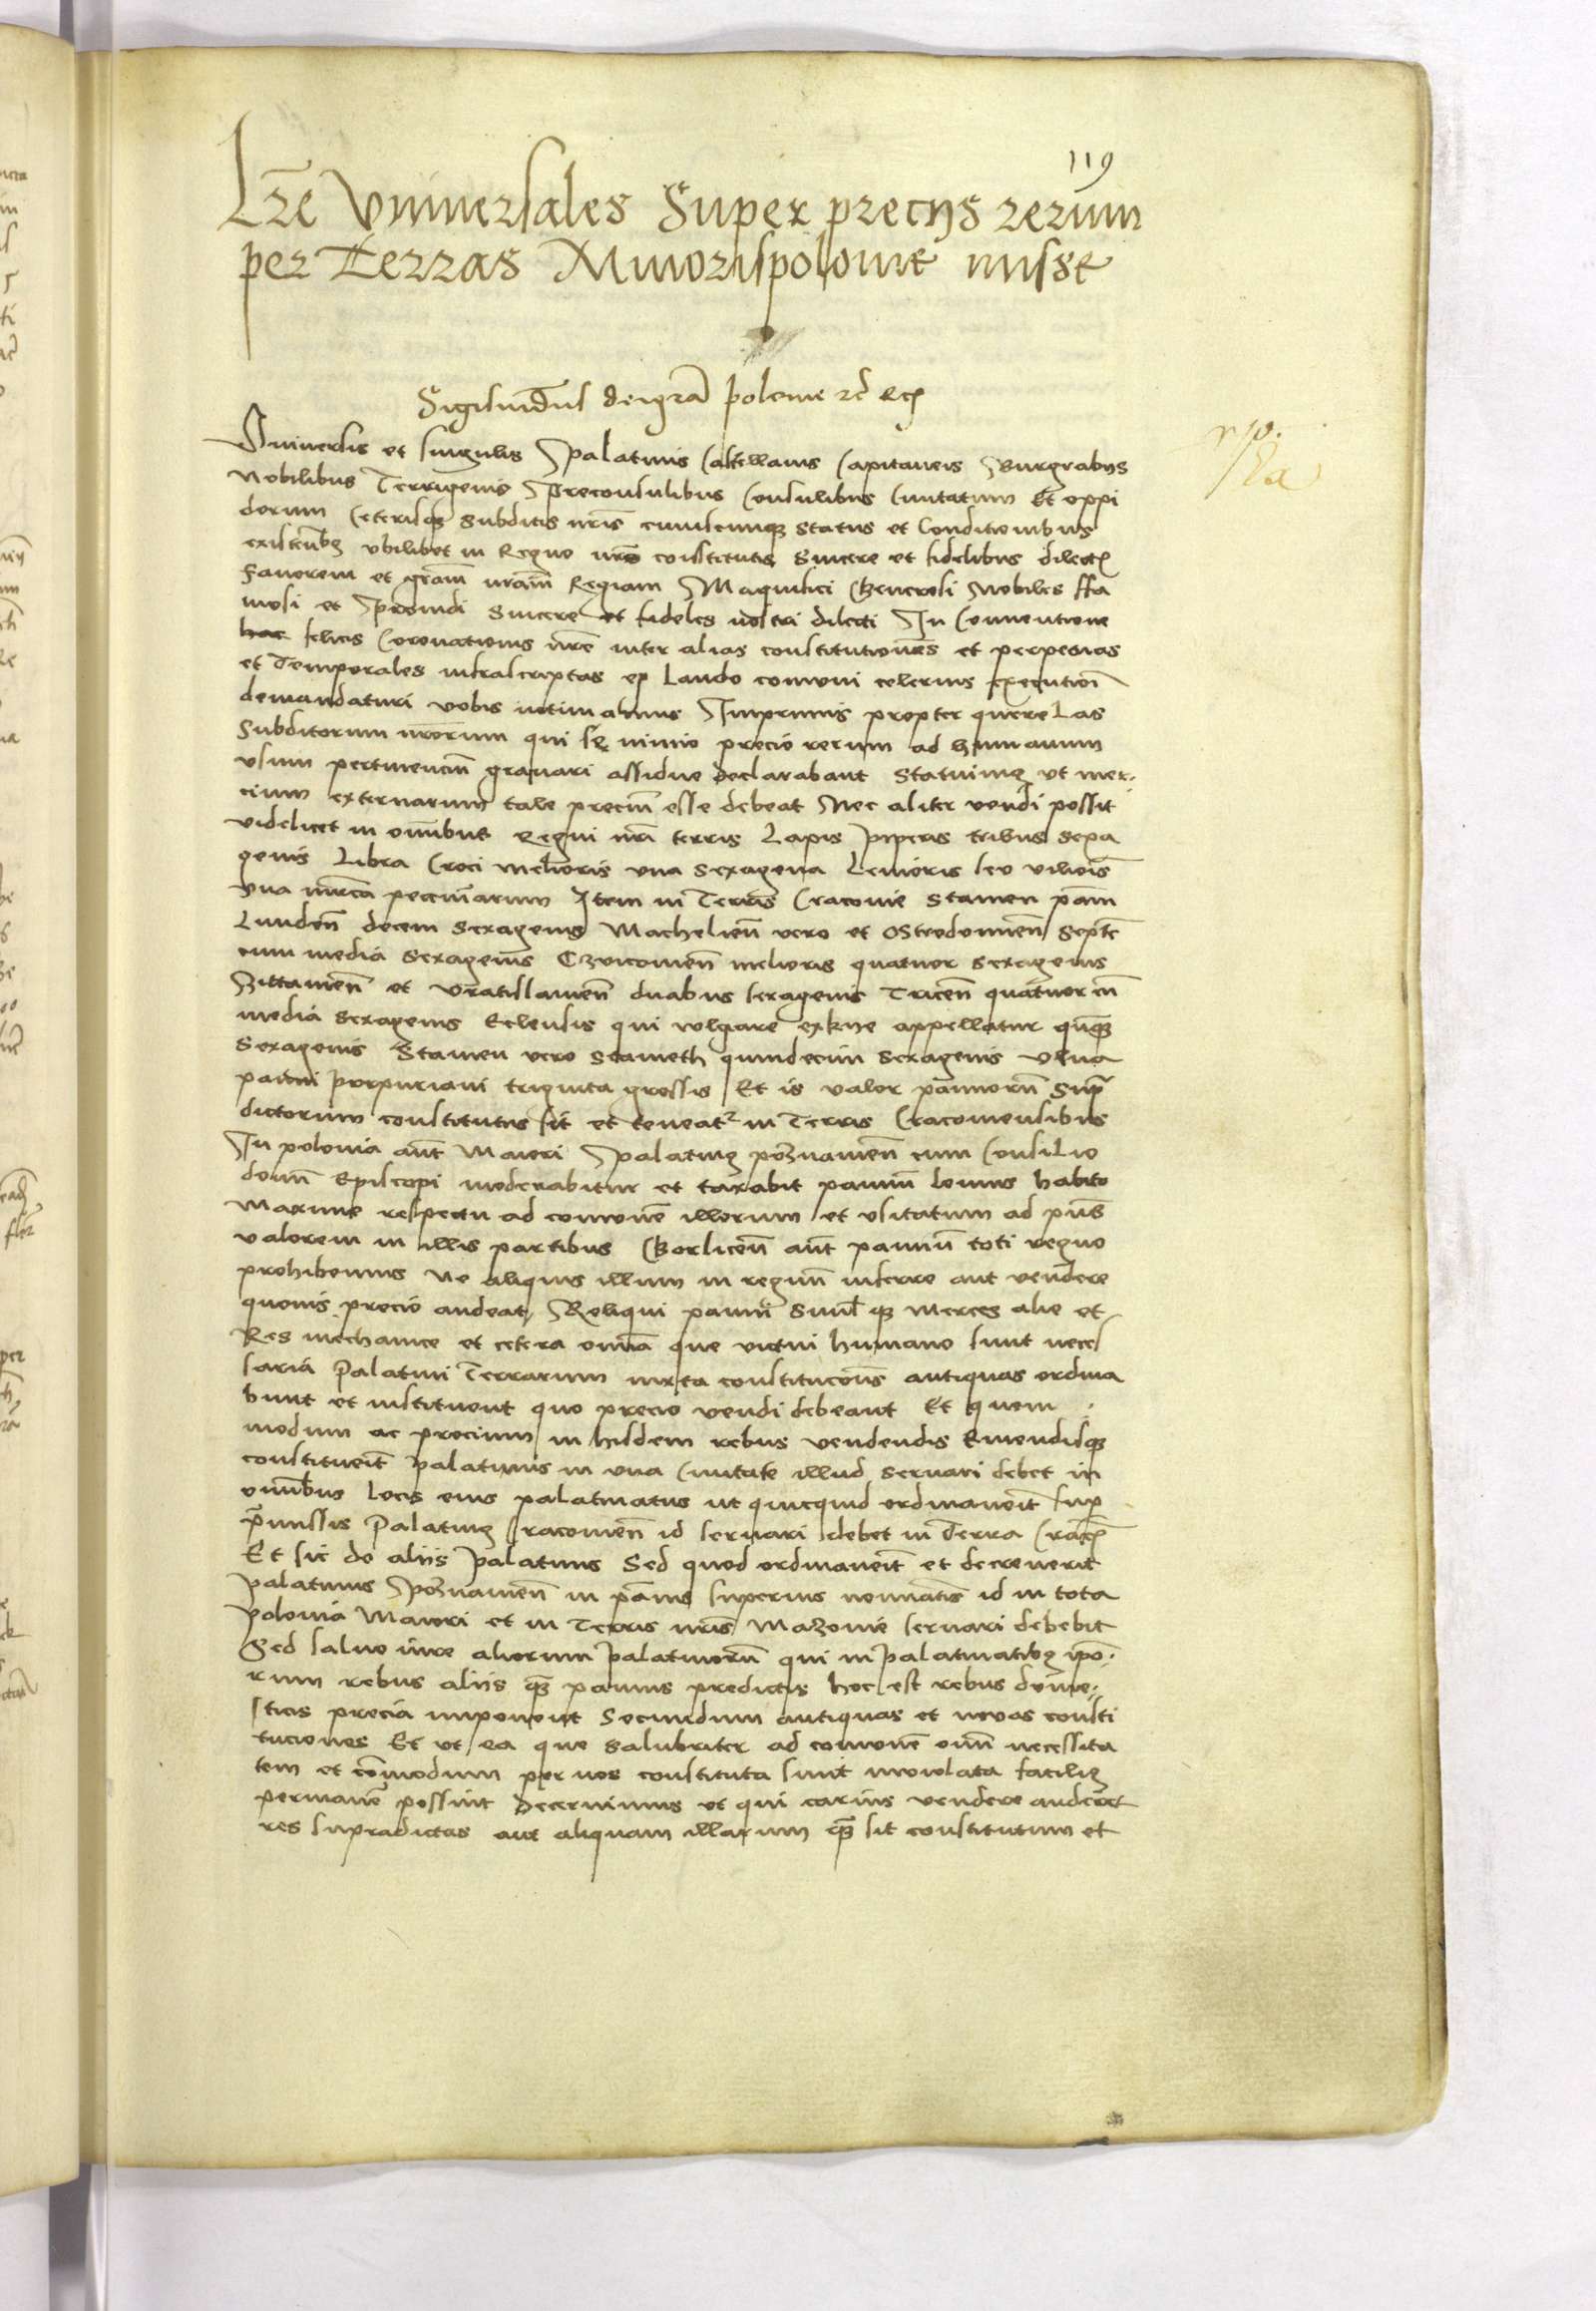 119
Lr̃e Vniuersales Super precijs rerum
per Terras Minorispolonie misse
Sigismũdus dei gr̃a polonie rẽ etc
Vniuersis et singulis Palatinis Castellanis Capitaneis Burgrabijs
Nobilibus Terrigenis Preconsulibus Consulibus Ciuitatum Et oppi
dorum Ceterisq; Subditis nr̃is cuiuscunq; Status et Conditionibus
existeñtib; vbilibet in Regno nr̃o constitutis Sincere et fidelibus dilectis
Fauorem et gr̃am nr̃am Regiam Magnifici Generosi Nobiles ffa
mosi et Prouidi Sincere et fideles nostri dilecti In Conuentione
hac felicis Coronationis nr̃e inter alias constitutiones et perpetuas
et Temporales infrascriptas ex Laudo comuni celerius executioni
demandaturi vobis intimamus Inprimis propter querelas
Subditorum nr̃orum qui se nimio precio rerum ad humanum
vsum pertinencium grauari assidue declarabant Statuimus vt mer
cium externarum tale preciũ esse debeat Nec aliter vendi possit
videlicet in omnibus Regni nr̃i terris Lapis piperis tribus sexa
genis Libra Croci melioris vna sexagena Leuioris seu viliois̃
vna mr̃ca pecuniarum Item in Terris Cracouie Stamen pañi
Lundeñ decem sexagenis Machelieñ vero et Osterdomieñ septẽ
cum media sexagenis Czvicouieñ melioris quatuor sexagenis
Zittauieñ et Vratislauieñ duabus sexagenis Triceñ quatuor cũ
media sexagenis Eclensis qui vulgare appellatur quinq;
sexagenis Stamen vero scameth quindecim sexagenis vlna
panni purpuriani triginta grossis Et is valor pannorũ Supra
dictorum constitutus sit et teneatur in Terris Cracouiensibus
In polonia aut̃ Maiori Palatinus poznanieñ cum Consilio
domĩ Episcopi moderabitur et taxabit pannũ Leonis habito
Maxime respectu ad comunẽ illorum et vsitatum ad pñs
valorem in illis partibus Gorliceñ aut̃ pannũ toti regno
prohibemus ne aliquis illum in regnũ inferre aut vendere
quouis precio audeat Reliqui panni Simul q; merces alie et
Res mechanice et cetera omnia que victui humano sunt neces
saria Palatini Terrarum iuxta constitucões antiquas ordina
bunt et instituent quo precio vendi debeant Et quem
modum ac precium in hisdem rebus vendendis Emendisq;
constituerit palatinus in vna Ciuitate illud seruari debet in
omnibus locis eius palatinatus ut quicquid ordinauerit sup
p̃missis Palatinus Cracouieñ id seruari debet in Terra Crac̃
Et sic de aliis palatinis Sed quod ordinauerit et decreuerit
palatinus Poznanieñ in pañis superius nominatis id in tota
polonia Maiori et in Terris nr̃is Mazouie seruari debebit
Sed saluo iure aliorum palatinorũ qui in palatinatib; ipo
rum rebus aliis q; pannis predictis hoc est rebus dome
sticis precia imponent Secundum antiquas et nouas consti
tuciones Et vt ea que salubriter ad comunẽ omĩ necessita
tem et com̃odum per nos constituta sunt inuiolata facilius
permanẽ possint decernimus vt qui carius vendere auderet
res supradictas aut aliquam illarum q̃ sit constitutum et